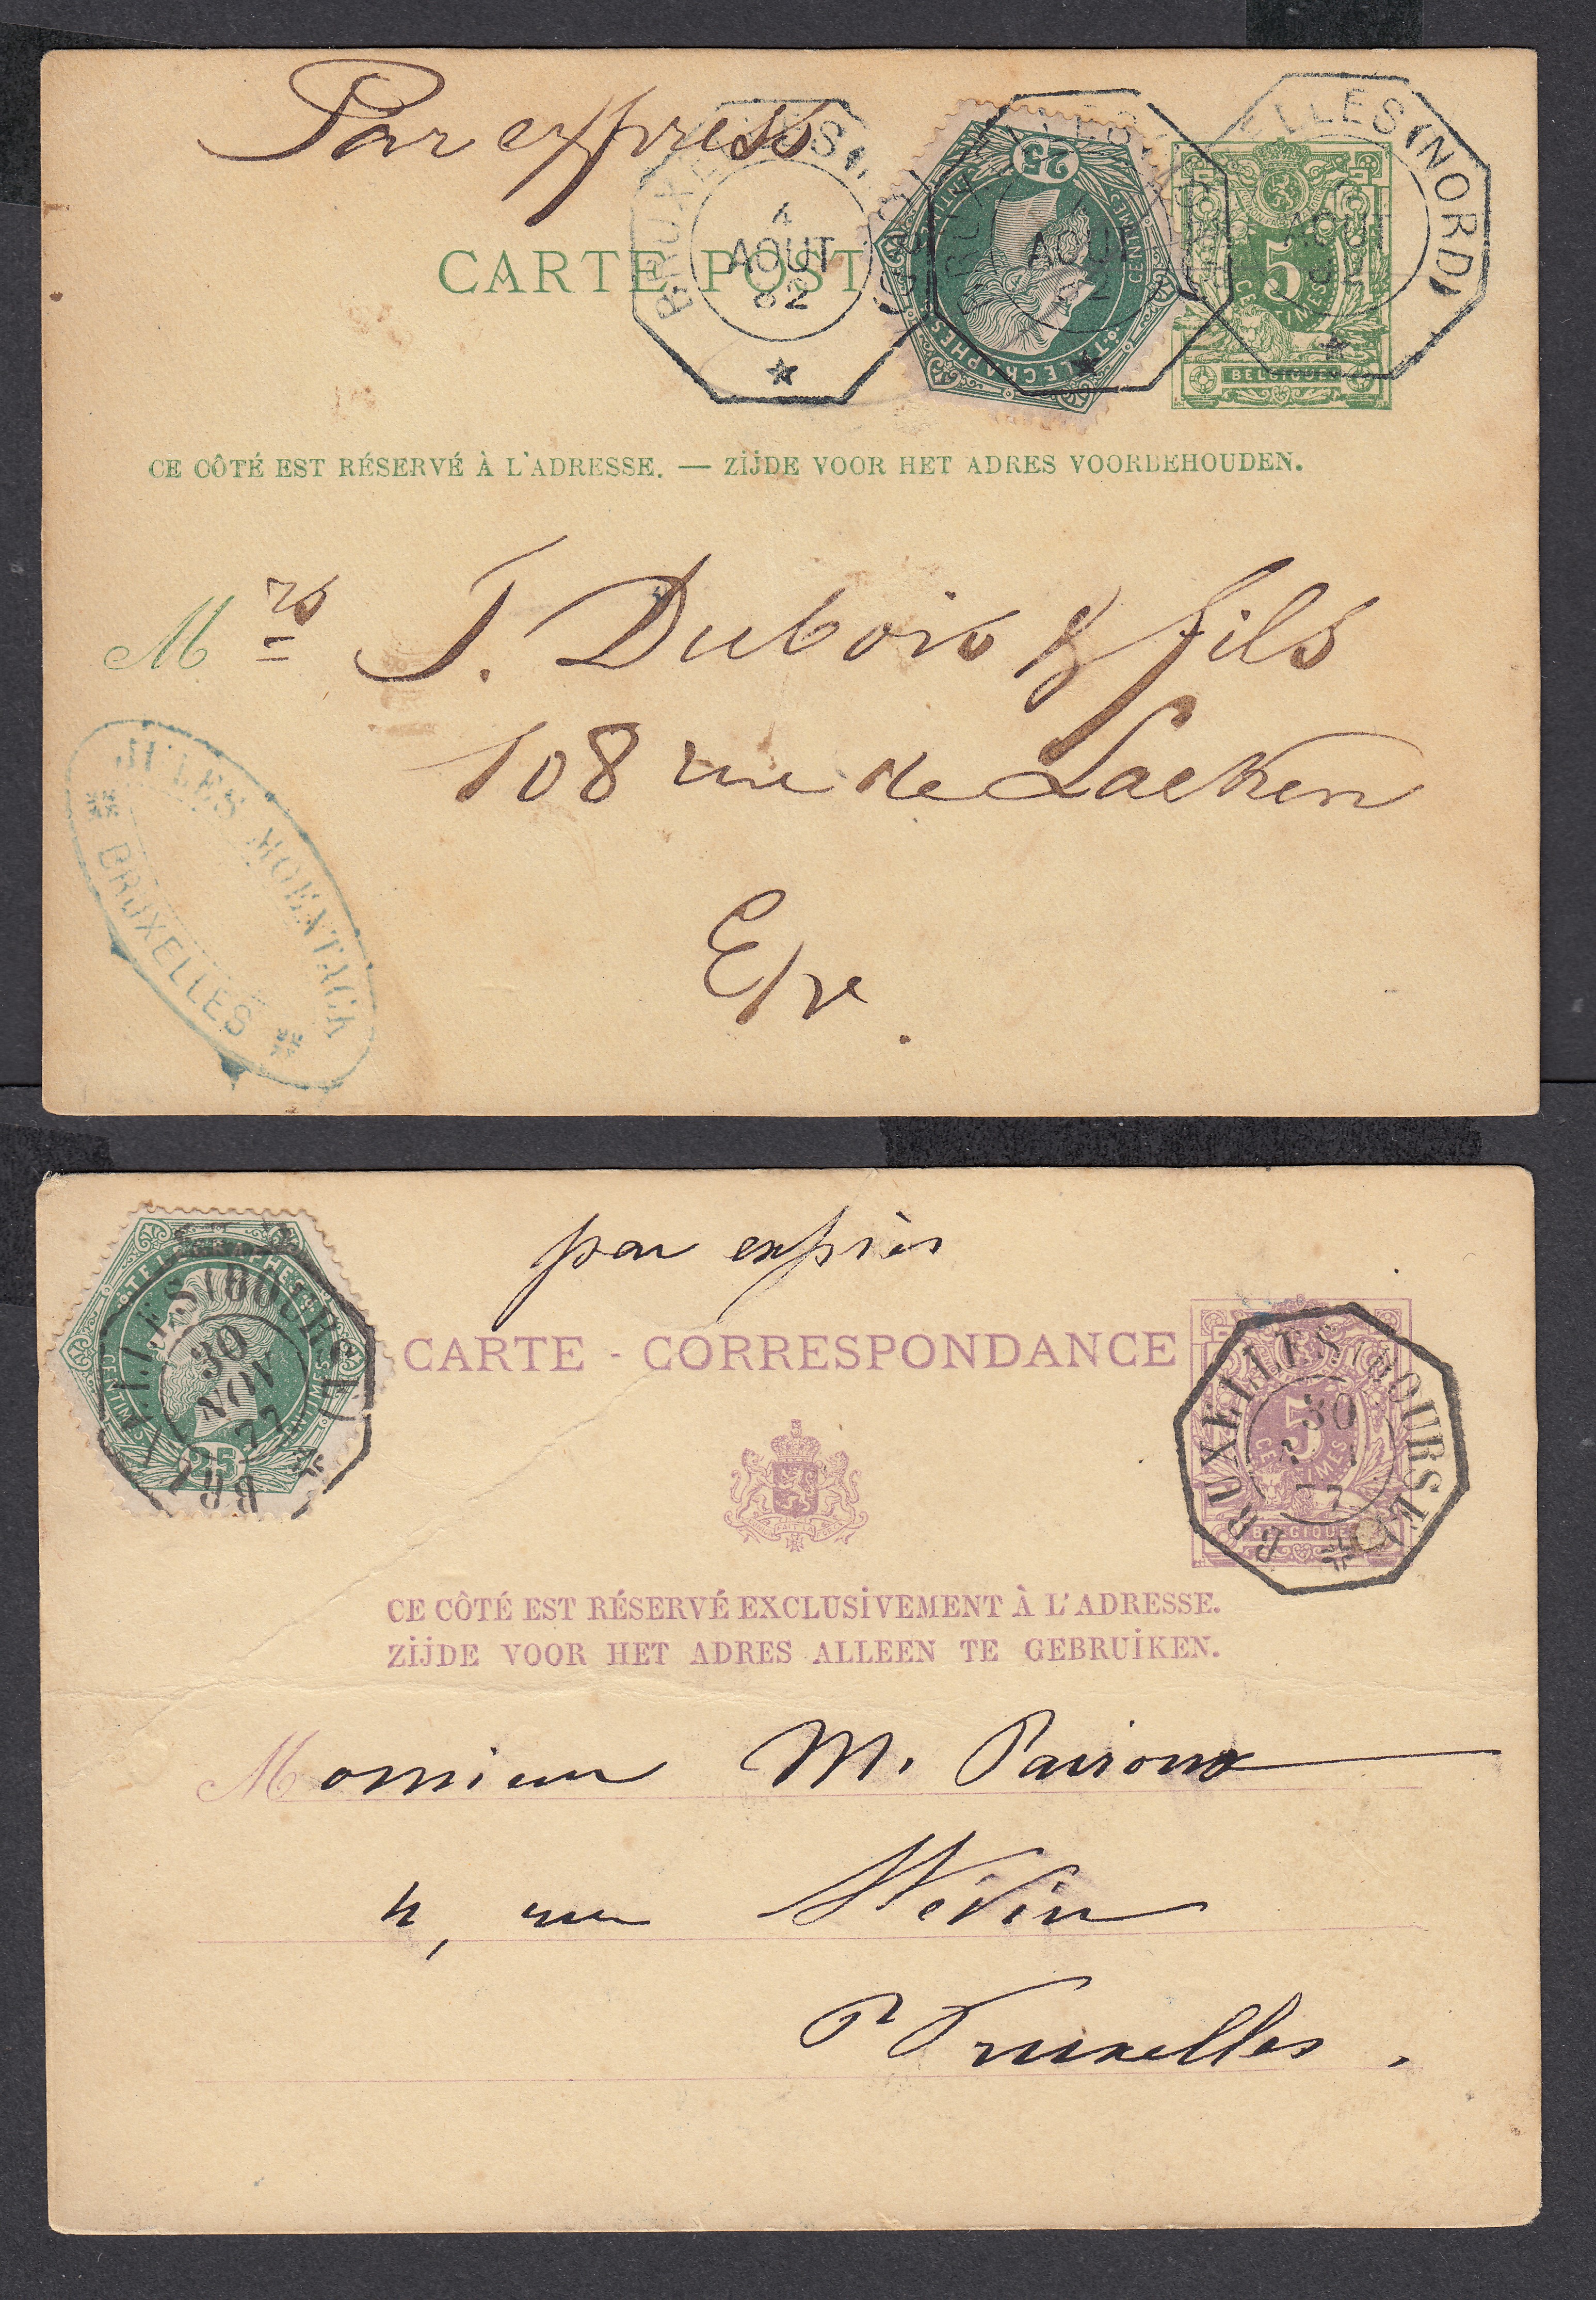 Par express
BRUXELLES (NORD)
4
AOUT
82
CARTE POST
25
CENTIMES
TELEGRAPHES
AOUT
ELLES (NORD)
AOUT
82
5
CENTIMES
BELGIQUE
CE CÔTÉ EST RÉSERVÉ À L'ADRESSE. — ZIJDE VOOR HET ADRES VOORBEHOUDEN.
Mrs J. Dubois & fils
108 rue de Laeken
E/v.
JULES
BRUXELLES
par exprès
TELEGRAPHES
CENTIMES
25
30
NOV
77
CARTE - CORRESPONDANCE
BRUXELLES (BOURSE)
30
77
5
CENTIMES
BELGIQUE
CE CÔTÉ EST RÉSERVÉ EXCLUSIVEMENT À L'ADRESSE.
ZIJDE VOOR HET ADRES ALLEEN TE GEBRUIKEN.
Monsieur M. Pairoux
4, rue Névin
Bruxelles.